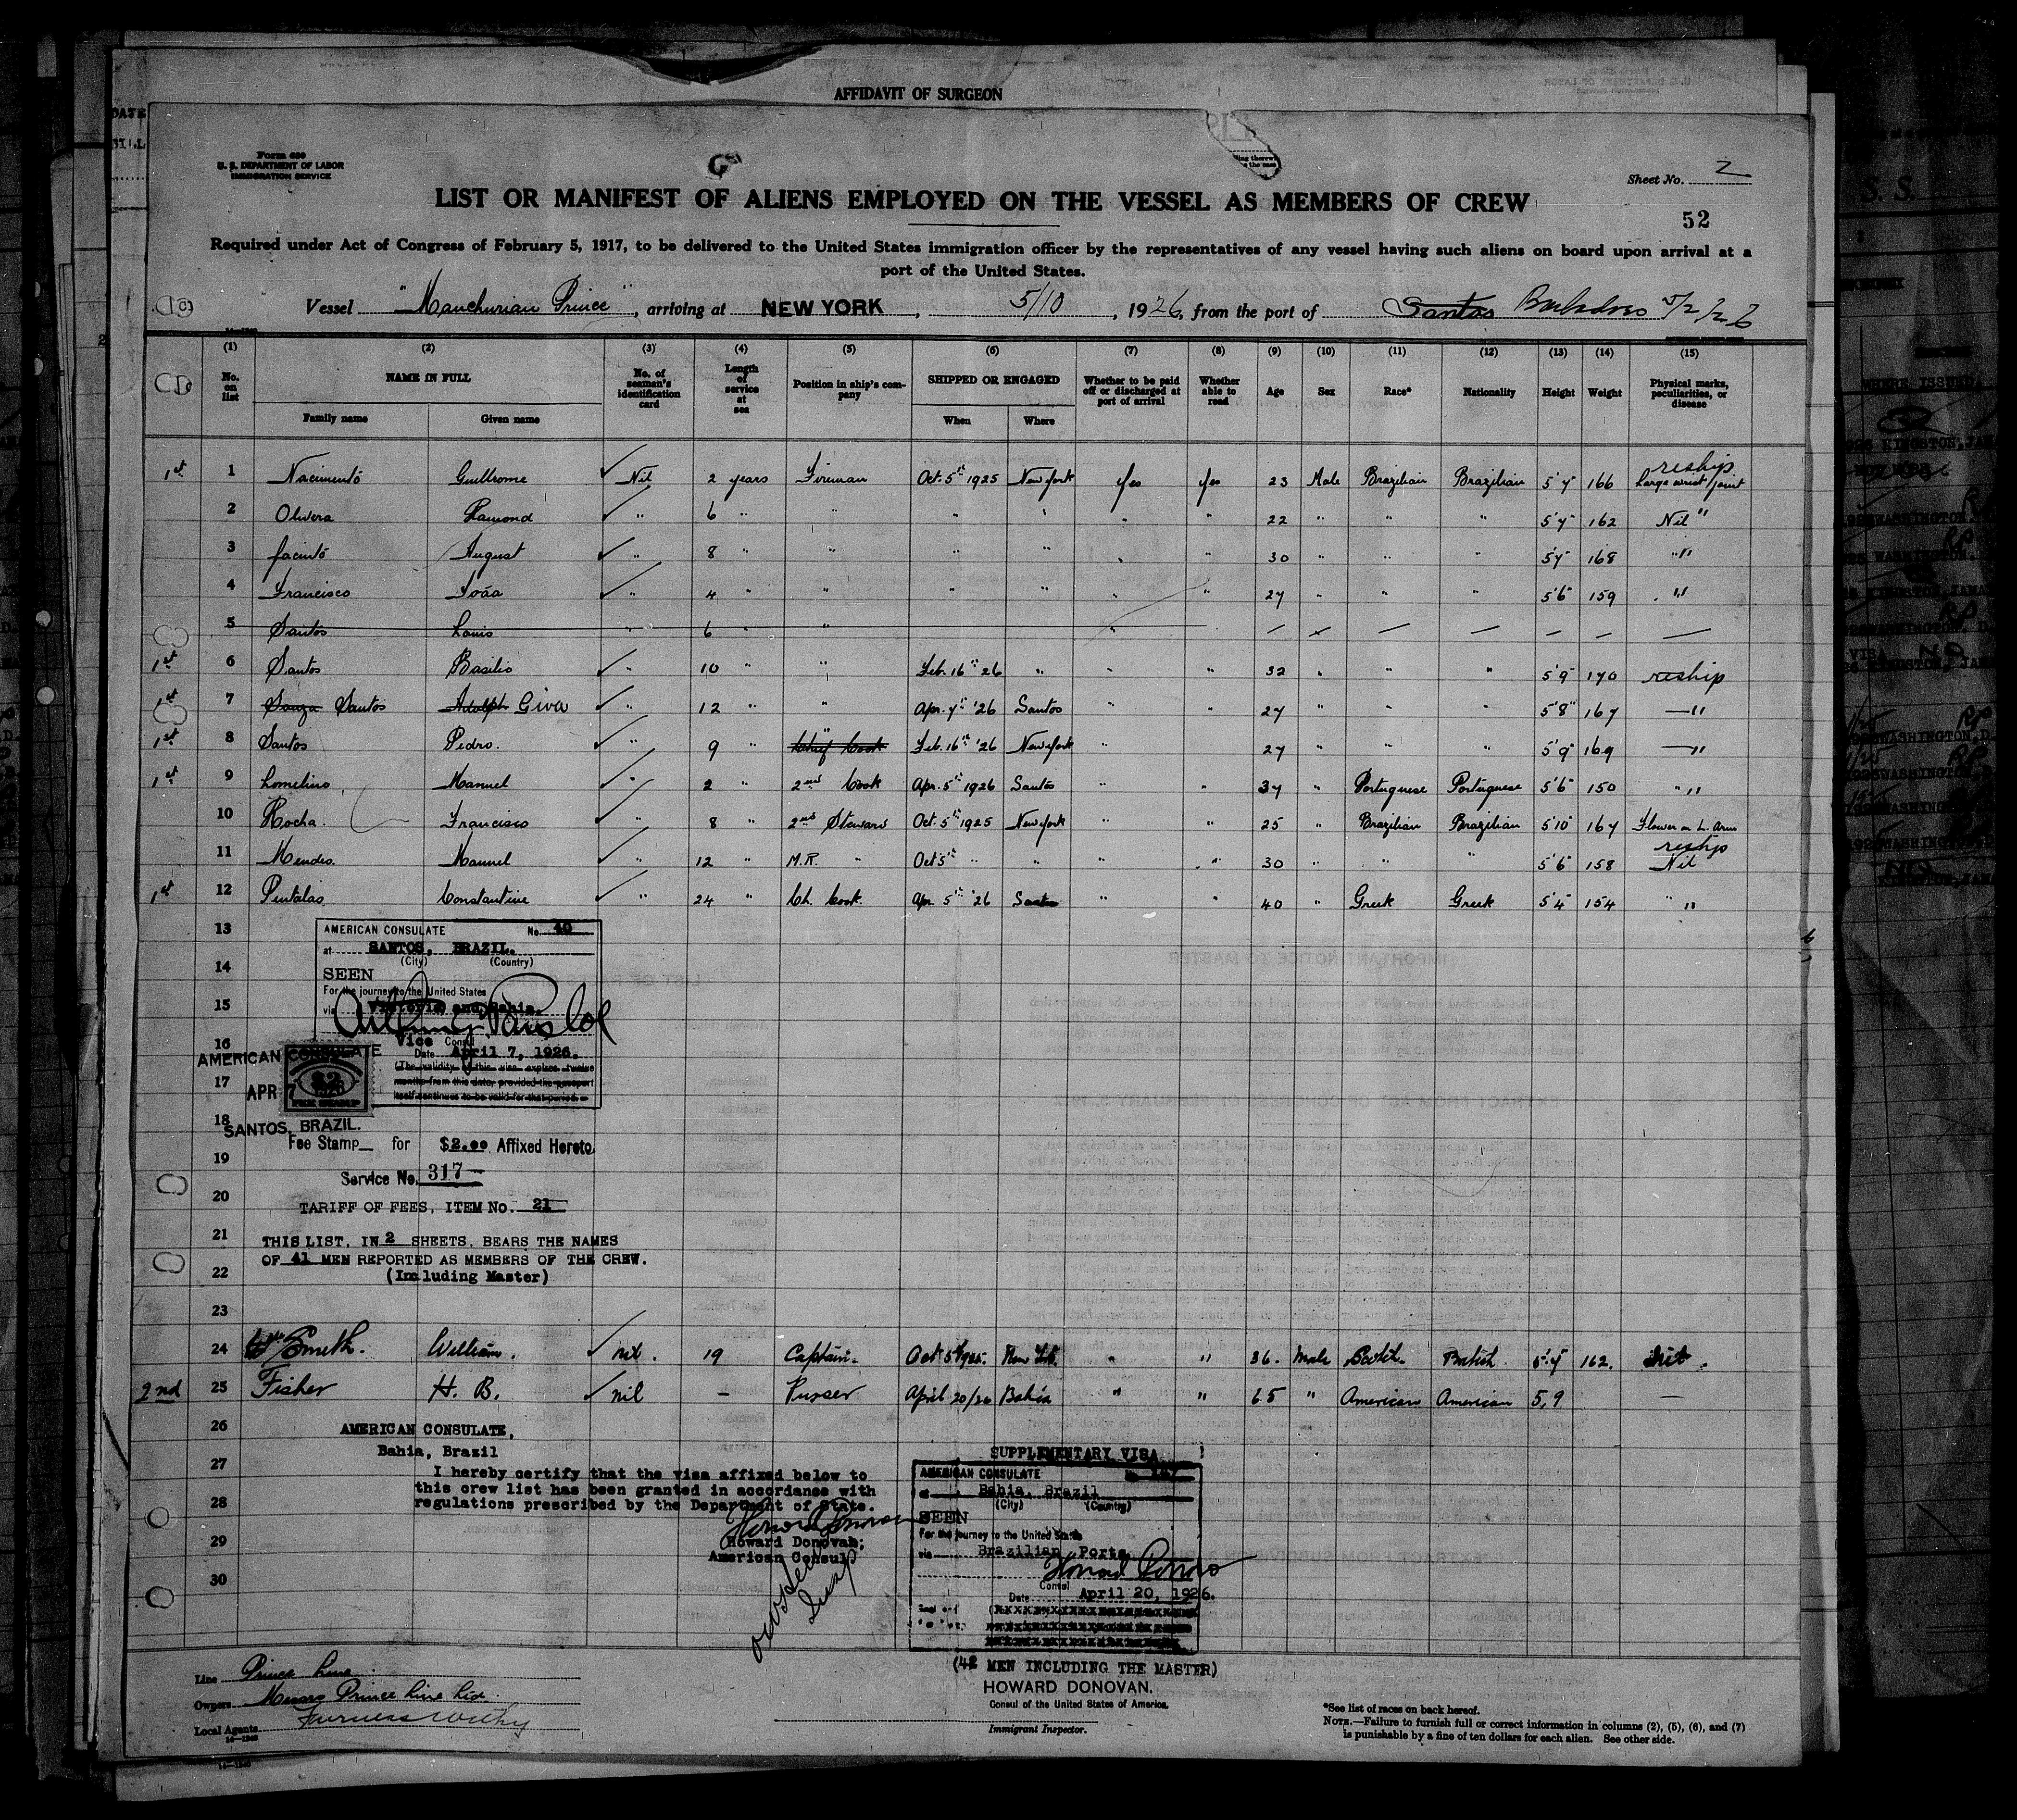 AFFIDAVIT OF SURGEON
Form 680
U. S. DEPARTMENT OF LABOR
IMMIGRATION SERVICE
Sheet No. 2
LIST OR MANIFEST OF ALIENS EMPLOYED ON THE VESSEL AS MEMBERS OF CREW
52
Required under Act of Congress of February 5, 1917, to be delivered to the United States immigration officer by the representatives of any vessel having such aliens on board upon arrival at a
port of the United States.
Vessel "Manchurian Prince", arriving at NEW YORK, 5/10, 1926, from the port of Santos Barbados 5/2/26
(1) (2) (3) (4) (5) (6) (7) (8) (9) (10) (11) (12) (13) (14) (15)
No. on list NAME IN FULL Family name Given name No. of seaman's identification card Length of service at sea Position in ship's company SHIPPED OR ENGAGED When Where Whether to be paid off or discharged at port of arrival Whether able to read Age Sex Race* Nationality Height Weight Physical marks, peculiarities, or disease
1st 1 Nacimento Guilhrome Nil 2 years Fireman Oct. 5th 1925 New York yes yes 23 Male Brazilian Brazilian 5'7" 166 reship Large wrist joint
2 Olivera Ramond " 6 " " " " " " 22 " " " 5'7" 162 Nil "
3 Jacinto August " 8 " " " " " " 30 " " " 5'7" 168 " "
4 Francisco João " 4 " " " " " " 27 " " " 5'6" 159 " "
5 Santos Louis " 6 " " "
1st 6 Santos Basilio " 10 " Feb. 16th 26 " " " 32 " " " 5'9" 170 reship
1st 7 Souza Santos Adolph Giva " 12 " " Apr. 7th '26 Santos " " 27 " " " 5'8" 167 — "
1st 8 Santos Pedro. " 9 " " Chief Cook Feb. 16th '26 New York " " 27 " " " 5'9" 169 — "
1st 9 Lomelino Manuel " 2 " 2nd Cook Apr. 5th 1926 Santos " " 37 " Portuguese Portuguese 5'6" 150 " "
10 Rocha. Francisco " 8 " 2nd Steward Oct. 5th 1925 New York " " 25 " Brazilian Brazilian 5'10" 167 Flower on L. Arm
11 Mendes. Manuel " 12 " M.R. " Oct 5th " " " " 30 " " " 5'6" 158 reship Nil
1st 12 Pentalas Constantine " 24 " Ch. Cook. Apr. 5th '26 Santos " " 40 " Greek Greek 5'4" 154 " "
13
AMERICAN CONSULATE No. 40
at SANTOS, BRAZIL.
(City) (Country)
14
SEEN
For the journey to the United States
15
via Victoria and Bahia.
16
Vice Consul
AMERICAN CONSULATE
Date April 7, 1926.
(The validity of this visa expires twelve
17
months from this date, provided the passport
APR 7
$2
FEE STAMP
itself continues to be valid for that period.
18
SANTOS, BRAZIL.
Fee Stamp for $2.00 Affixed Hereto
19
Service No. 317
20
TARIFF OF FEES, ITEM No. 21
21
THIS LIST, IN 2 SHEETS, BEARS THE NAMES
OF 41 MEN REPORTED AS MEMBERS OF THE CREW.
22
(Including Master)
23
24 Smith. William. nil. 19 Captain. Oct 5th 1925. New York. " " 36. Male Scotch. British 5'7" 162. Nil.
2nd 25 Fisher H. B. nil — Purser April 20/26 Bahia " " 65 " American American 5,9 —
26
AMERICAN CONSULATE,
Bahia, Brazil
27
I hereby certify that the visa affixed below to
this crew list has been granted in accordance with
28
regulations prescribed by the Department of State.
29
Howard Donovan;
American Consul
30
SUPPLEMENTARY VISA
AMERICAN CONSULATE
at Bahia, Brazil
(City) (Country)
SEEN
For the journey to the United States
via Brazilian Ports
Howard Donovan
Consul
Date April 20, 1926.
(42 MEN INCLUDING THE MASTER)
HOWARD DONOVAN.
Consul of the United States of America.
Immigrant Inspector.
Line Prince Line
Owners Messrs Prince Line Ltd.
Local Agents Furness Withy
*See list of races on back hereof.
NOTE.—Failure to furnish full or correct information in columns (2), (5), (6), and (7)
is punishable by a fine of ten dollars for each alien. See other side.